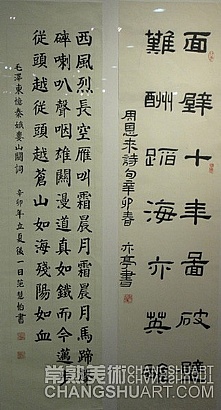 面壁十年圖破壁
難酬蹈海亦英雄
周恩来詩句辛卯春 亦亭書
西風烈長空雁叫霜晨月霜晨月馬蹄聲
碎喇叭聲咽雄關漫道真如鐵而今邁步
從頭越從頭越蒼山如海殘陽如血
毛澤東憶秦娥婁山關詞 辛卯年立夏後一日范慧怡書
常熟美術